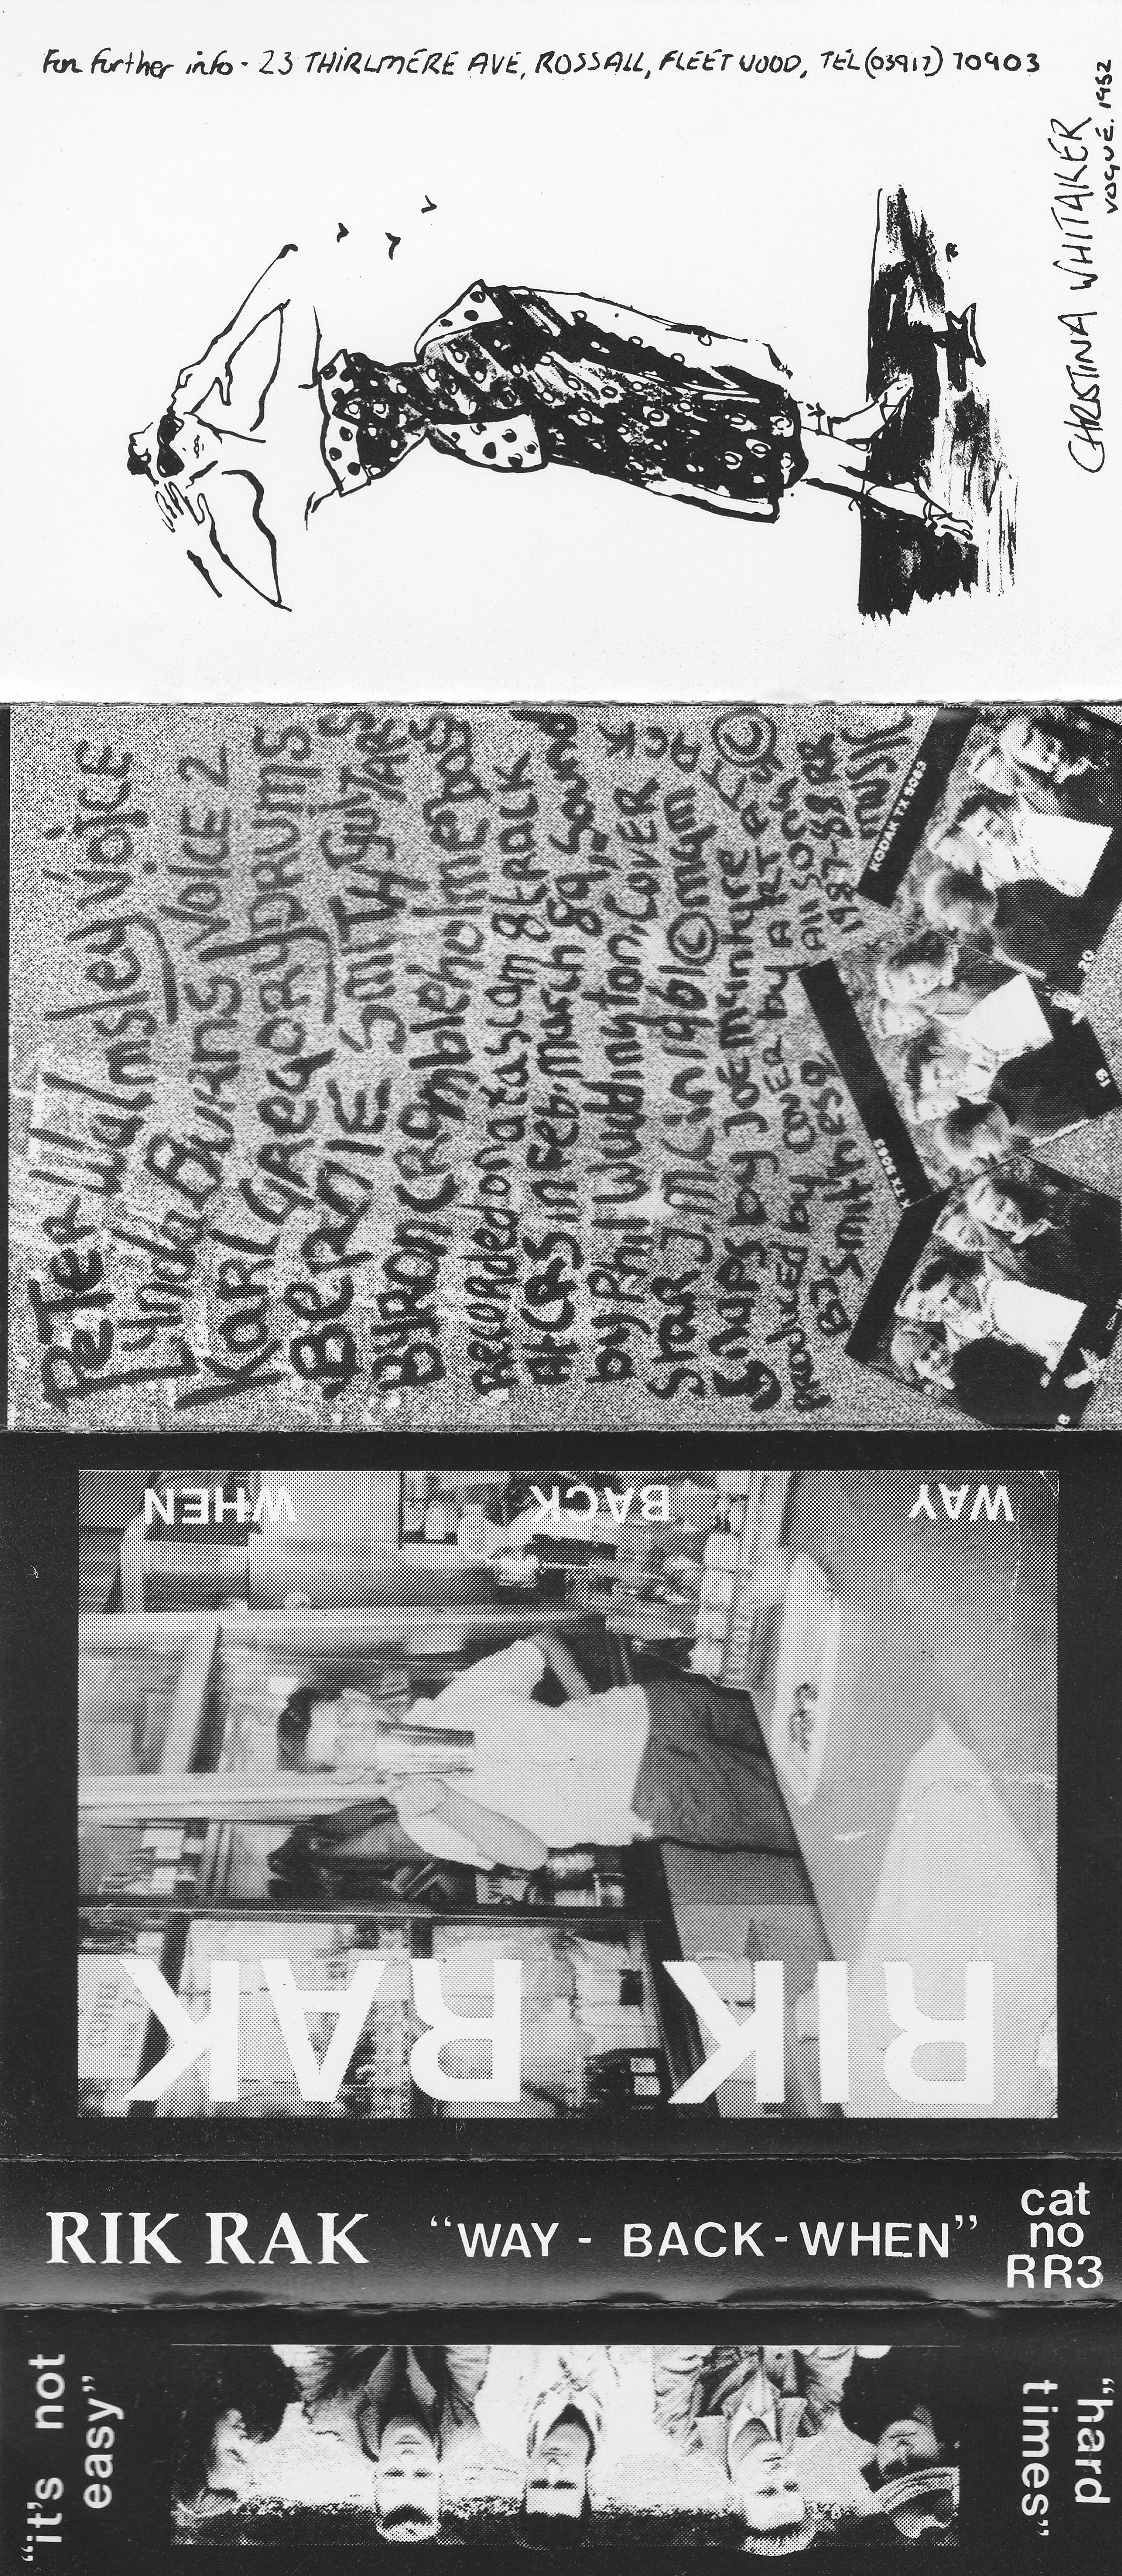 For further info - 23 THIRLMERE AVE, ROSSALL, FLEETWOOD, TEL (03917) 70903
CHRISTINA WHITAKER
VOGUE. 1952
PETER Walmsley VOiCE
Lynda BURNS VOICE 2
KARL GREGORY DRUMS
BERNIE SMITH GUITARS
BYRON CROmbleholme bass
RECORDED on a tascam 8 tRACK
At CRS in Feb-march 89, Sound
by Phil Wuddington, COVER
Shot J.M.C. in 1961 © mqm
Snaps by JOE mcinhyre
PRODUCED by COVER by ART
BJ Smith esq
All SONGS
1987-88 RR
music
KODAK TX 5063
TX 5063
20
19
18
WAY BACK WHEN
RIK RAK
RIK RAK "WAY - BACK - WHEN" cat
no
RR3
"it's not
easy"
"hard
times"